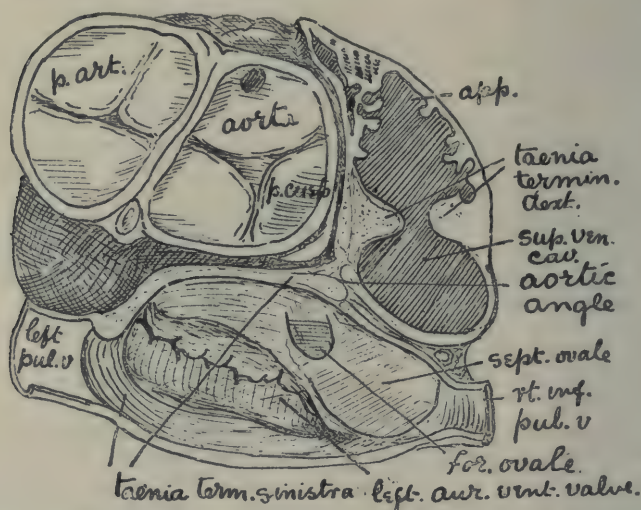 p. art.
aorta
p. cusp
app.
taenia
termin.
dext.
sup. ven.
cav.
aortic
angle
left
pul. v
sept. ovale
rt. inf.
pul. v
for. ovale.
taenia term. sinistra
left. aur. vent. valve.